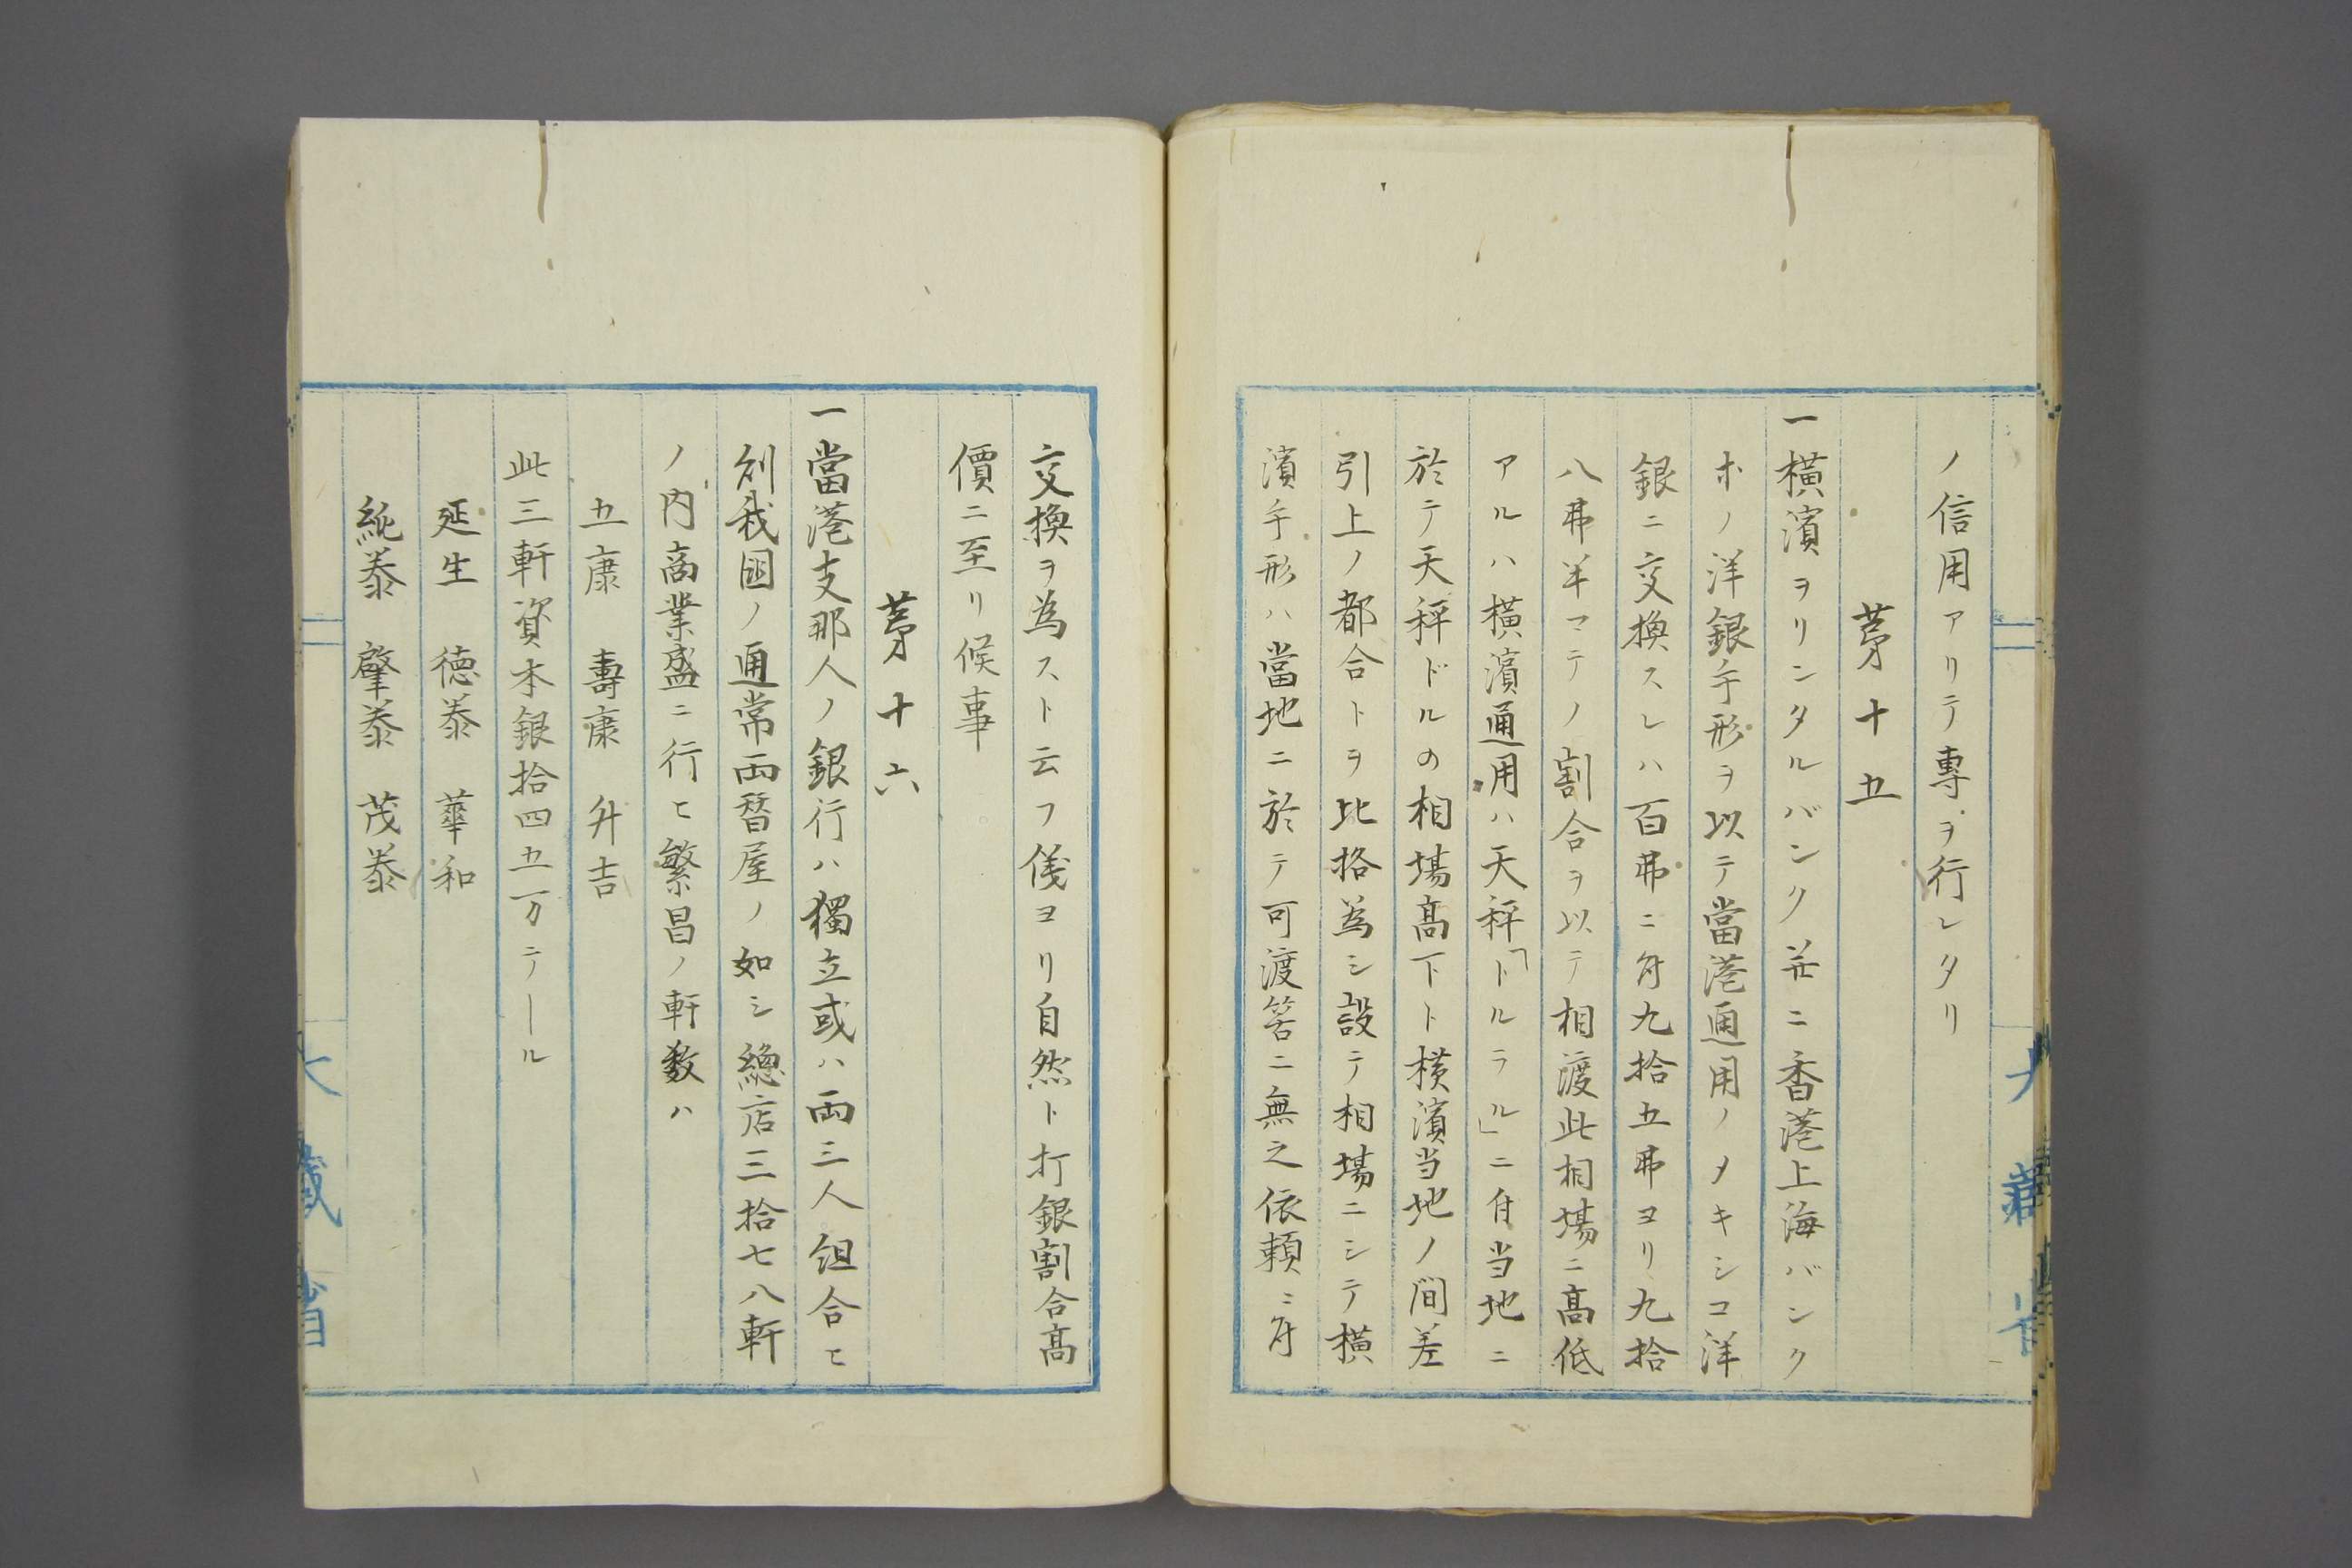 ノ信用アリテ專ヲ行レタリ
第十五
一橫濱ヲリンタルバンク並ニ香港上海バンク
ホノ洋銀手形ヲ以テ當港通用ノメキシコ洋
銀ニ交換スレハ百弗ニ付九拾五弗ヨリ九拾
八弗半マテノ割合ヲ以テ相渡此相場ニ高低
アルハ橫濱通用ハ天秤「ドルラル」ニ付当地ニ
於テ天秤ドルの相場髙下ト橫濱当地ノ間差
引上ノ都合トヲ比格為シ設テ相場ニシテ橫
濱手形ハ當地ニ於テ可渡筈ニ無之依頼ニ付
交換ヲ為スト云フ儀ヨリ自然ト打銀割合髙
價ニ至リ候事
第十六
一當港支那人ノ銀行ハ獨立或ハ両三人組合ヒ
則我国ノ通常両替屋ノ如シ總店三拾七八軒
ノ内商業盛ニ行ヒ繁昌ノ軒数ハ
五康 壽康 升吉
此三軒資本銀拾四五万テール
延生 徳泰 華和
純泰 肇泰 茂泰
大藏省
大藏省